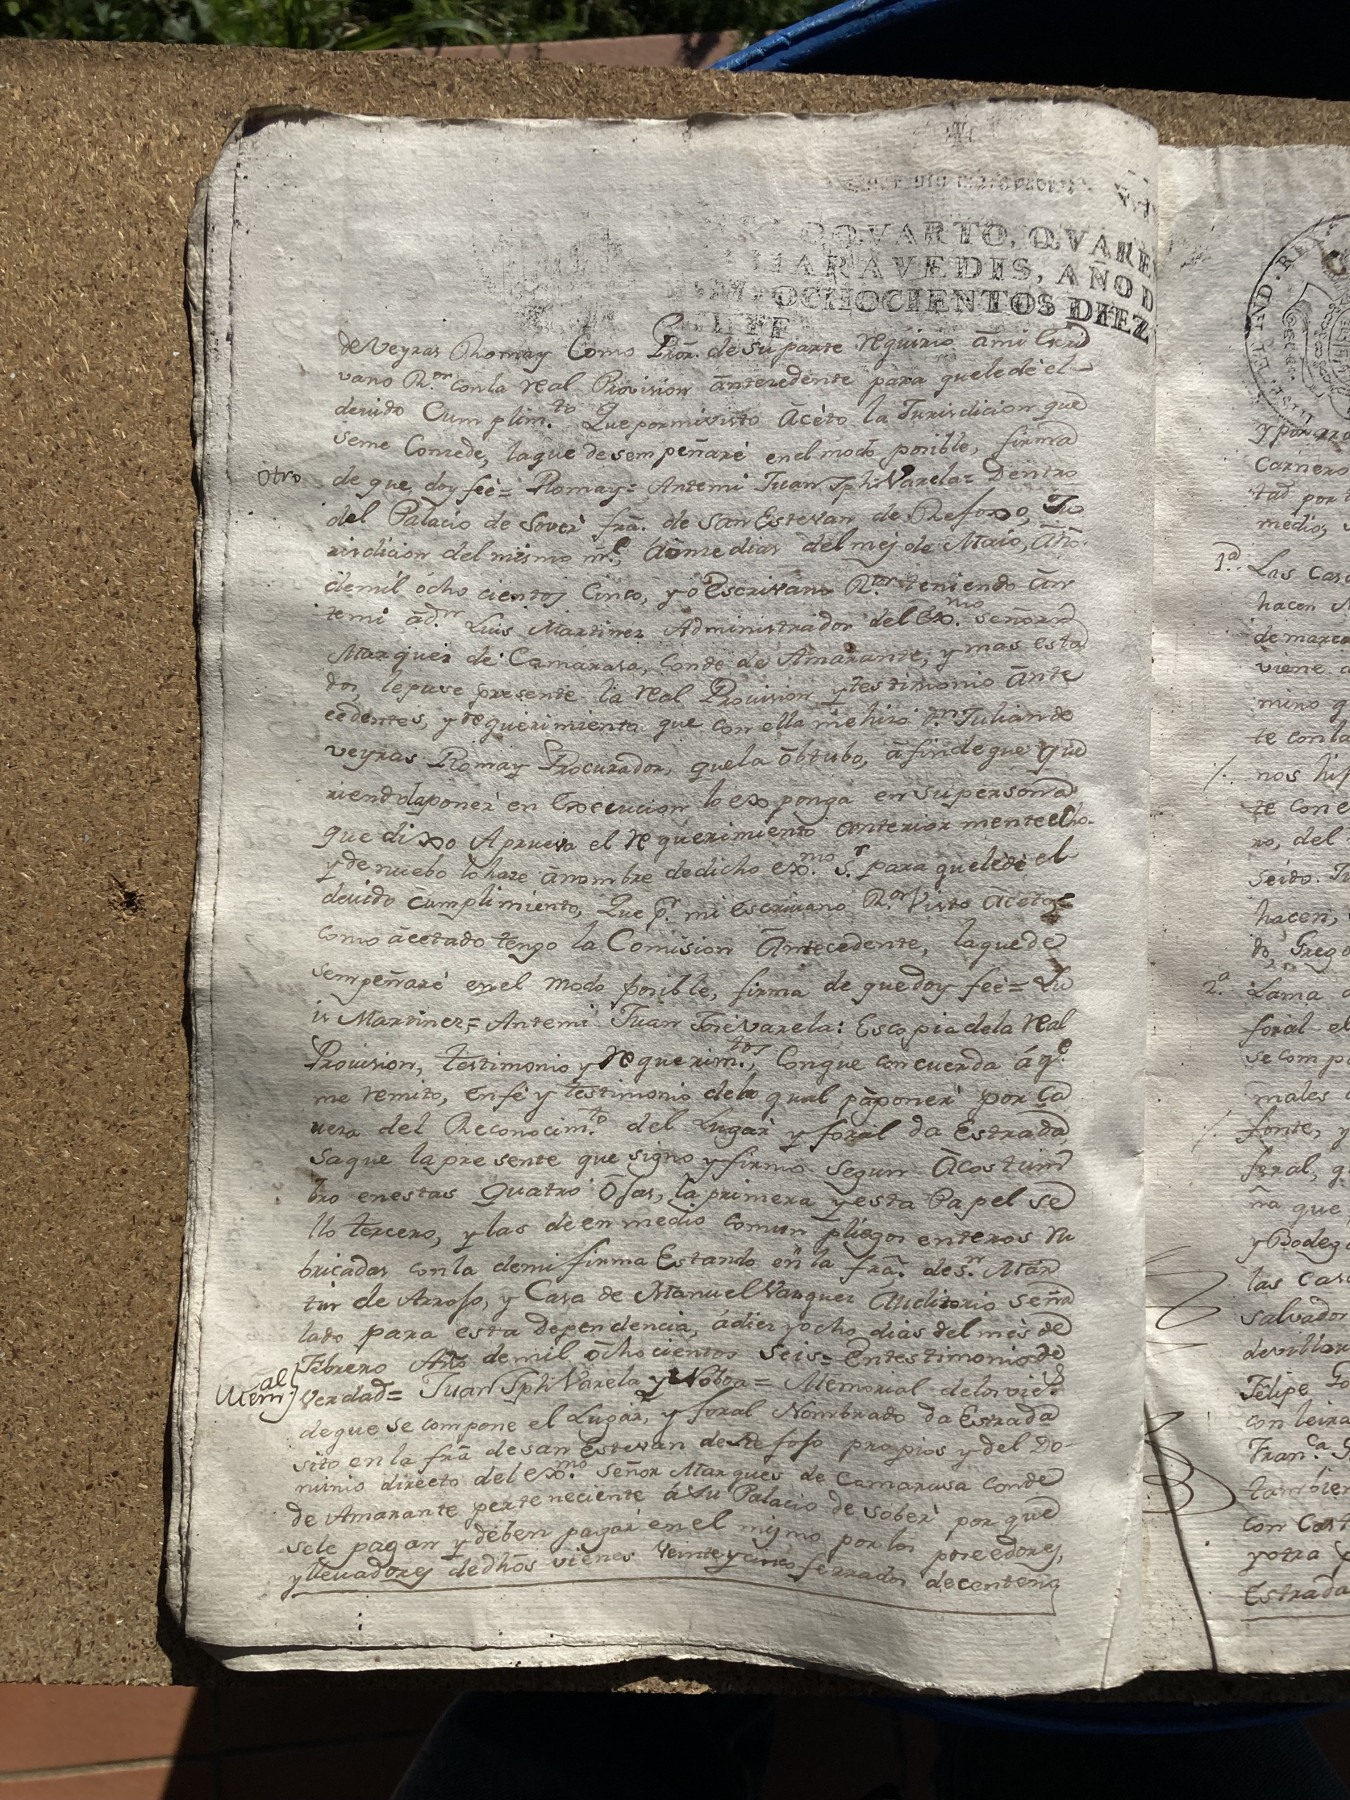 QVARTO, QVARE
MARAVEDIS, AÑO D
OCHOCIENTOS DIEZ
de Veyras Rromay Como Pror. de su parte requirio ami Escri
vano Rr.or con la real Provision antecedente para que le dè el
devido Cumplim.to Que por mi visto Acèto la Jurisdicion que
seme Conzede, la que desempeñarè en el modo posible, firma
Otro
de que doy feè= Romay= Antemi Juan Jph Varela= Dentro
del Palacio de Soverè frâ. de San Estevan de Refoxo, Ju
risdicion del mismo nre, à onze dias del mes de Maio, Año
de mil ocho cientos Cinco, yo Escrivano Rr.or teniendo An
temi à d.n Luis Martinez Administrador del Ex.mo señor
Marques de Camarasa, Conde de Amarante, y mas esta
dos, le puse presente la real Provision y testimonio ante
cedentes, y requerimiento que con ella me hizo d.n Julian de
veyras Romay Procurador, que la obtubo, à fin de que que
riendo laponer en Execucion lo exponga en su persona
que dixo Aprueva el requerimiento anteriormente echo.
y de nuebo lo haze à nombre de dicho ex.mo S.r para que le dè el
devido cumplimiento, Que p.r mi Escrivano Rr.or Visto Aceto,
como acetado tengo la Comision Antecedente, la que de
sempeñarè en el modo posible, firma de que doy feè= Lu
is Martinez= Antemi Juan Josè Varela: Es copia de la real
Provision, testimonio y requerim.tos, Con que concuerda á q.e
me remito, en fè y testimonio delo qual pàponer por Ca
veza del Reconocim.to del Lugar y foral da Estrada
Saque la presente que signo y firmo segun Acostum
bro en estas quatro Ojas, la primera y esta Papel se
llo tercero, y las de en medio comun pliegos enteros ru
bricadas con la de mi firma Estando en la frâ. de S.n Mar
tin de Arroxo, y Casa de Manuel Vazquez Auditorio Seña
lado para esta dependencia, à diez y ocho dias del mes de
Febrero Año de mil ochocientos Seis= En testimonio de
Mem.al
Verdad= Juan Jph Varela y Noboa= Memorial delos vie.s
de que se compone el Lugar, y foral Nombrado da Estrada
sito en la frâ de san Estevan de Refoxo propios y del Do-
minio directo del ex.mo Señor Marques de Camarasa Conde
de Amarante perteneciente á su Palacio de Soberè por que
sele pagan y deben pagar en el mismo por los poseedores,
y llevadores de dhos vienes Veinte y cinco ferrados de centeno
y por
Carnero
tad por
medios,
1.a Las Casa
hacen
de marco
viene
mino q
te con la
nos hi
te con e
ro, del
seido.
hacen,
do, Grego
2.a Lama
foral el
se comp
males
fonte, y
foral, q
ña que
y Bodega
las Casa
Salvador
de villar
Felipe
con leira
Fran.ca
tambien
con
y otra
Estrada